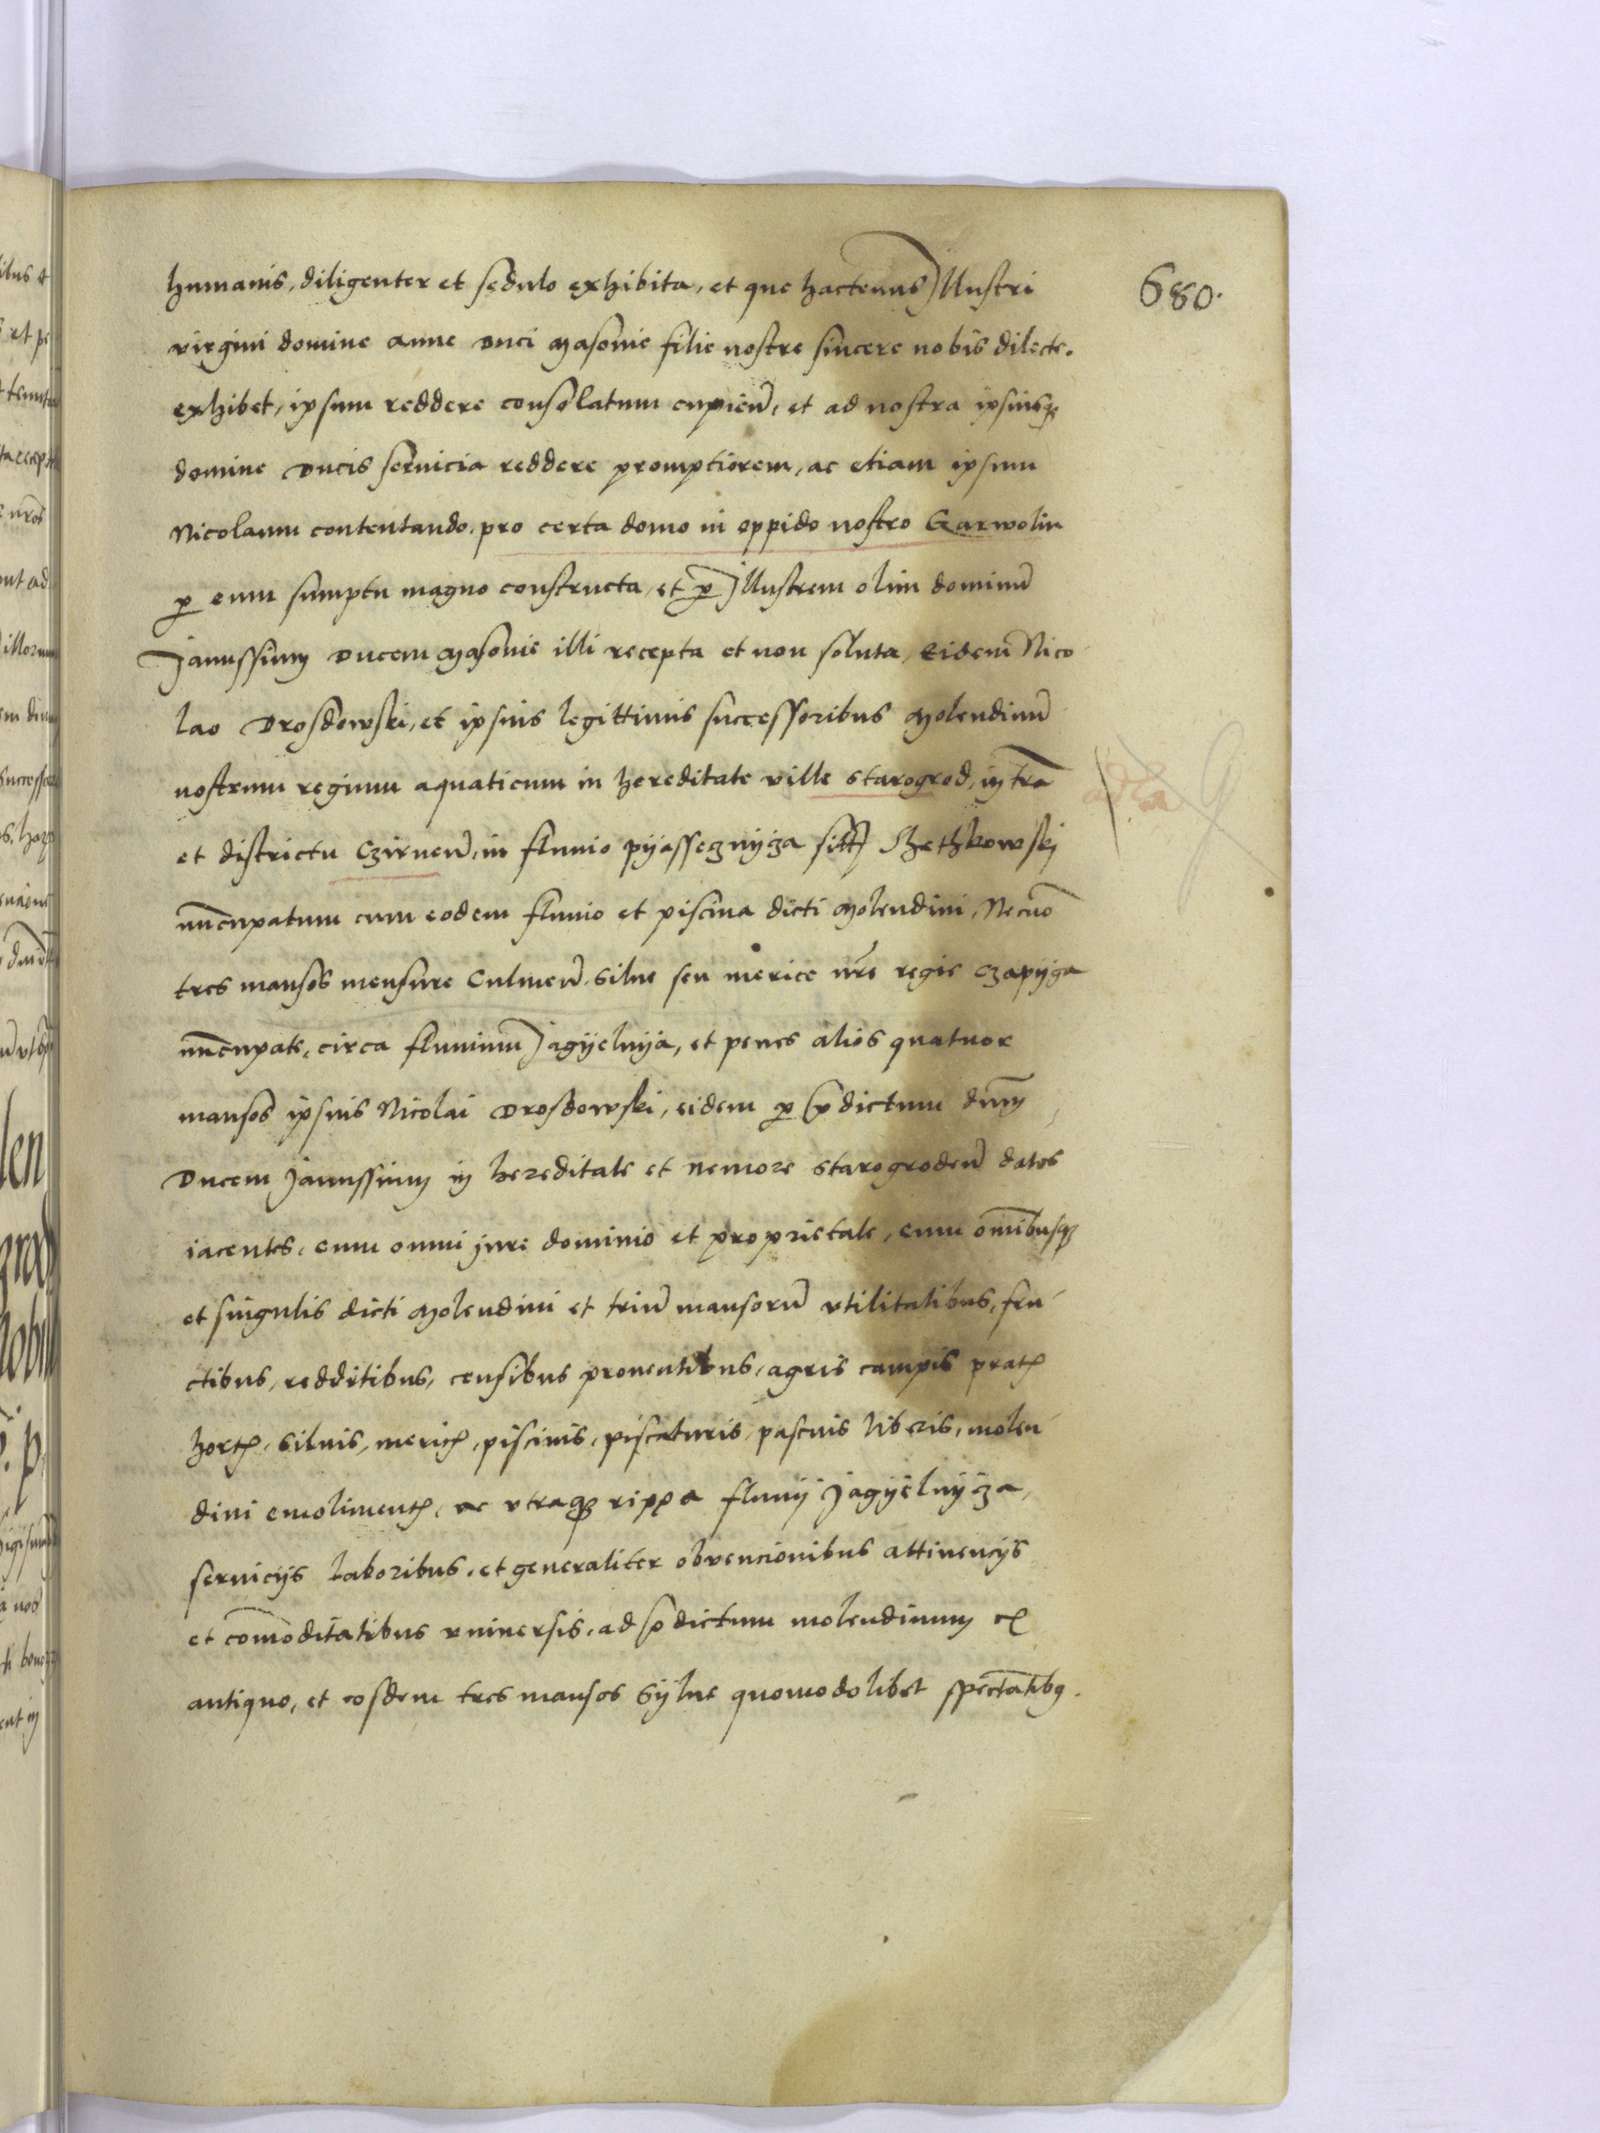 680.
humanis, diligenter et sedulo exhibita, et que hactenus Illustri
virgini domine anne duci Masovie filie nostre sincere nobis dilecte.
exhibet, ipsum reddere consolatum cupien̄, et ad nostra ipsiusqȝ
domine ducis servicia reddere promptiorem, ac etiam ipsum
Nicolaum contentando, pro certa domo in oppido nostro Garwolin
ꝑ eum sumptu magno constructa, et ꝑ Illustrem olim dominū
Janussium ducem Masovie illi recepta et non soluta, Eidem Nico
lao Drosdowski, et ipsius legittimis successoribus Molendinū
nostrum regium aquaticum in hereditate ville starogrod, in tr̄a
et districtu Czirnen̄, in fluvio pyassecznycza
nūcupatum cum eodem fluvio et piscina dicti Molendini, Necnō
tres mansos mensure Culmen̄. silve seu merice nr̄e regie Czapyga
nūcupate, circa fluvium Jagyelnya, et penes alios quatuor
mansos ipsius Nicolai Drosdowski, eidem ꝑ p̄dictum dn̄m
Ducem Janussium in hereditate et nemore starogroden̄ datos
iacentes, cum omni jure dominio et proprietate, cum om̄ibusqȝ
et singulis dicti Molendini et triū mansorū utilitatibus, fru
ctibus, redditibus, censibus proventibus, agris campis pratꝭ
hortꝭ, silvis, mericꝭ, piscinis, piscaturis, pascuis liberis, molen
dini emolimentꝭ, ac utraqȝ rippa fluvij Jagyelnycza,
servicijs laboribus, et generaliter obvencionibus attinencijs
et com̄oditatibus universis, ad p̄dictum molendinum ex
antiquo, et eosdem tres mansos sylve quomodolibet spectan̄tibꝯ.